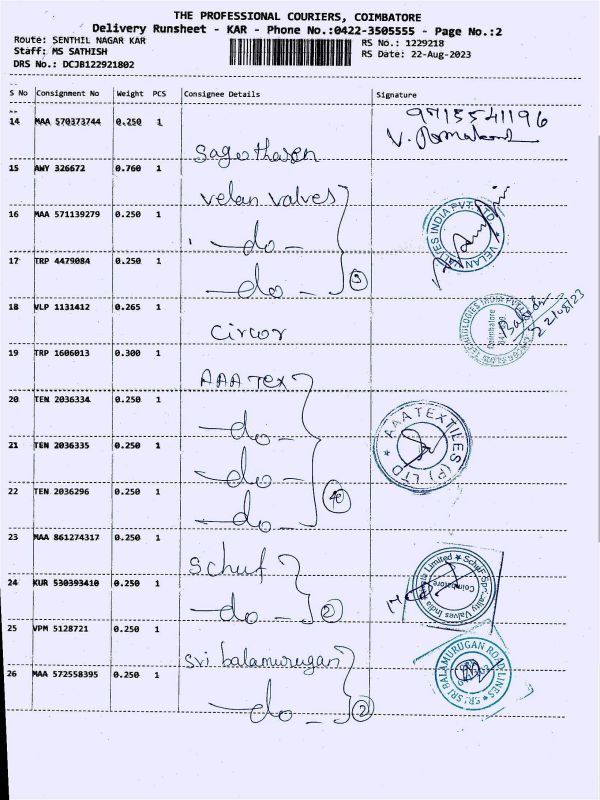 THE PROFESSIONAL COURIERS, COIMBATORE
Delivery Runsheet - KAR - Phone No.:0422-3505555 - Page No.:2
Route: SENTHIL NAGAR KAR
RS No.: 1229218
Staff: MS SATHISH
RS Date: 22-Aug-2023
DRS No.: DCJB122921802
S No Consignment No Weight PCS Consignee Details Signature
14 MAA 570373744 0.250 1
9715541196
15 AWY 326672 0.760 1
velan valves
VELAN VALVES INDIA PVT. LTD.
16 MAA 571139279 0.250 1
-do-
17 TRP 4479084 0.250 1
-do- 3
18 VLP 1131412 0.265 1
Circor
TECHNOLOGIES INDIA PVT LTD
Coimbatore
22/08/23
19 TRP 1606013 0.300 1
AAA Tex
20 TEN 2036334 0.250 1
-do-
AAA TEXTILES (P) LTD
21 TEN 2036335 0.250 1
-do-
22 TEN 2036296 0.250 1
-do- 4
23 MAA 861274317 0.250 1
Schuf
Schuf Speciality Valves India Private Limited
Coimbatore
24 KUR 530393410 0.250 1
-do- 2
25 VPM 5128721 0.250 1
Sri balamurugan
SRI BALAMURUGAN ROADLINES
26 MAA 572558395 0.250 1
-do- 2